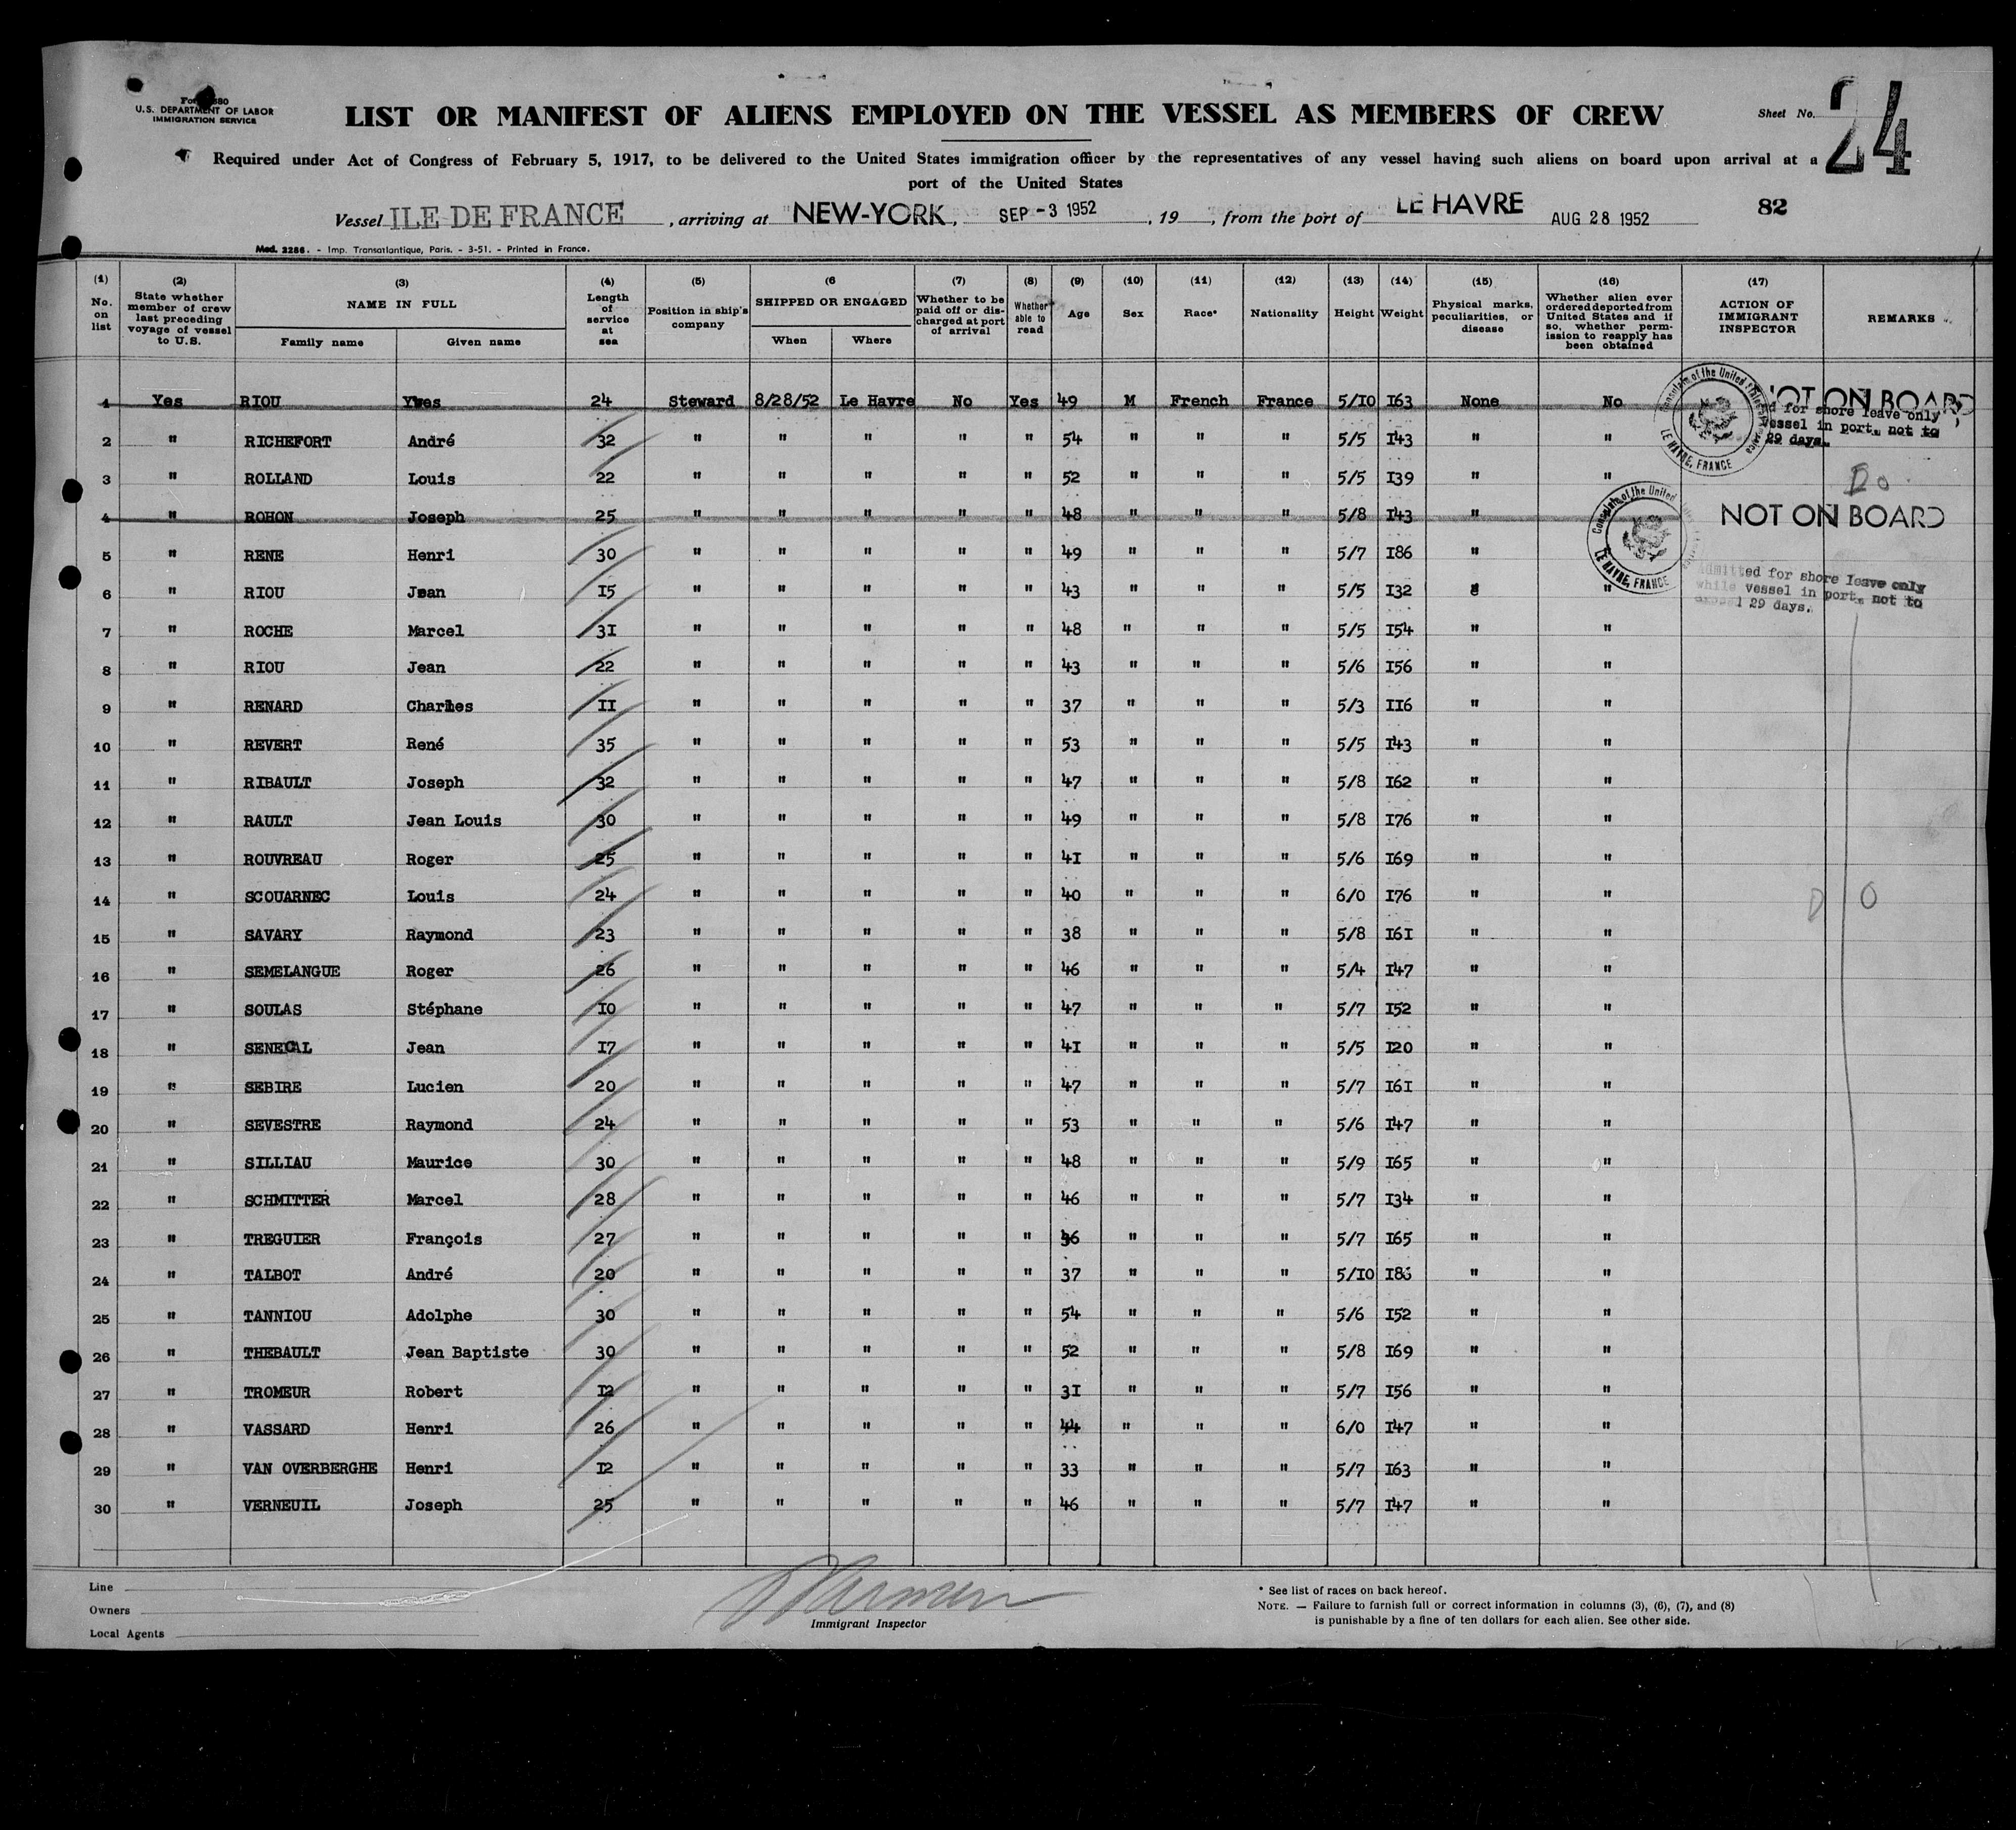 U.S. DEPARTMENT OF LABOR
IMMIGRATION SERVICE
LIST OR MANIFEST OF ALIENS EMPLOYED ON THE VESSEL AS MEMBERS OF CREW
Sheet No. 24
Required under Act of Congress of February 5, 1917, to be delivered to the United States immigration officer by the representatives of any vessel having such aliens on board upon arrival at a
port of the United States
Vessel ILE DE FRANCE, arriving at NEW-YORK, SEP -3 1952, 19 , from the port of LE HAVRE AUG 28 1952 82
Mod. 2286. - Imp. Transatlantique, Paris. - 3-51. - Printed in France.
(1) No. on list
(2) State whether member of crew last preceding voyage of vessel to U.S.
(3) NAME IN FULL Family name Given name
(4) Length of service at sea
(5) Position in ship's company
(6 SHIPPED OR ENGAGED When Where
(7) Whether to be paid off or discharged at port of arrival
(8) Whether able to read
(9) Age
(10) Sex
(11) Race*
(12) Nationality
(13) Height
(14) Weight
(15) Physical marks, peculiarities, or disease
(16) Whether alien ever ordered deported from United States and if so, whether permission to reapply has been obtained
(17) ACTION OF IMMIGRANT INSPECTOR
REMARKS
1 Yes RIOU Yves 24 Steward 8/28/52 Le Havre No Yes 49 M French France 5/10 163 None No NOT ON BOARD
d for shore leave only
vessel in port, not to
29 days.
2 " RICHEFORT André 32 " " " " " 54 " " " 5/5 143 " "
3 " ROLLAND Louis 22 " " " " " 52 " " " 5/5 139 " " Do
4 " ROHON Joseph 25 " " " " " 48 " " " 5/8 143 " NOT ON BOARD
5 " RENE Henri 30 " " " " " 49 " " " 5/7 186 "
6 " RIOU Jean 15 " " " " " 43 " " " 5/5 132 " "
Admitted for shore leave only
while vessel in port, not to
29 days.
7 " ROCHE Marcel 31 " " " " " 48 " " " 5/5 154 " "
8 " RIOU Jean 22 " " " " " 43 " " " 5/6 156 " "
9 " RENARD Charles 11 " " " " " 37 " " " 5/3 116 " "
10 " REVERT René 35 " " " " " 53 " " " 5/5 143 " "
11 " RIBAULT Joseph 32 " " " " " 47 " " " 5/8 162 " "
12 " RAULT Jean Louis 30 " " " " " 49 " " " 5/8 176 " "
13 " ROUVREAU Roger 25 " " " " " 41 " " " 5/6 169 " "
14 " SCOUARNEC Louis 24 " " " " " 40 " " " 6/0 176 " " D O
15 " SAVARY Raymond 23 " " " " " 38 " " " 5/8 161 " "
16 " SEMELANGUE Roger 26 " " " " " 46 " " " 5/4 147 " "
17 " SOULAS Stéphane 10 " " " " " 47 " " " 5/7 152 " "
18 " SENECAL Jean 17 " " " " " 41 " " " 5/5 120 " "
19 " SEBIRE Lucien 20 " " " " " 47 " " " 5/7 161 " "
20 " SEVESTRE Raymond 24 " " " " " 53 " " " 5/6 147 " "
21 " SILLIAU Maurice 30 " " " " " 48 " " " 5/9 165 " "
22 " SCHMITTER Marcel 28 " " " " " 46 " " " 5/7 134 " "
23 " TREGUIER François 27 " " " " " " " " 5/7 165 " "
24 " TALBOT André 20 " " " " " 37 " " " 5/10 " "
25 " TANNIOU Adolphe 30 " " " " " 54 " " " 5/6 152 " "
26 " THEBAULT Jean Baptiste 30 " " " " " 52 " " " 5/8 169 " "
27 " TROMEUR Robert 12 " " " " " 31 " " " 5/7 156 " "
28 " VASSARD Henri 26 " " " " " 44 " " " 6/0 147 " "
29 " VAN OVERBERGHE Henri 12 " " " " " 33 " " " 5/7 163 " "
30 " VERNEUIL Joseph 25 " " " " " 46 " " " 5/7 147 " "
Consulate of the United
LE HAVRE, FRANCE
Consulate of the United
LE HAVRE, FRANCE
Line
Owners
Local Agents
Immigrant Inspector
* See list of races on back hereof.
NOTE. — Failure to furnish full or correct information in columns (3), (6), (7), and (8)
is punishable by a fine of ten dollars for each alien. See other side.